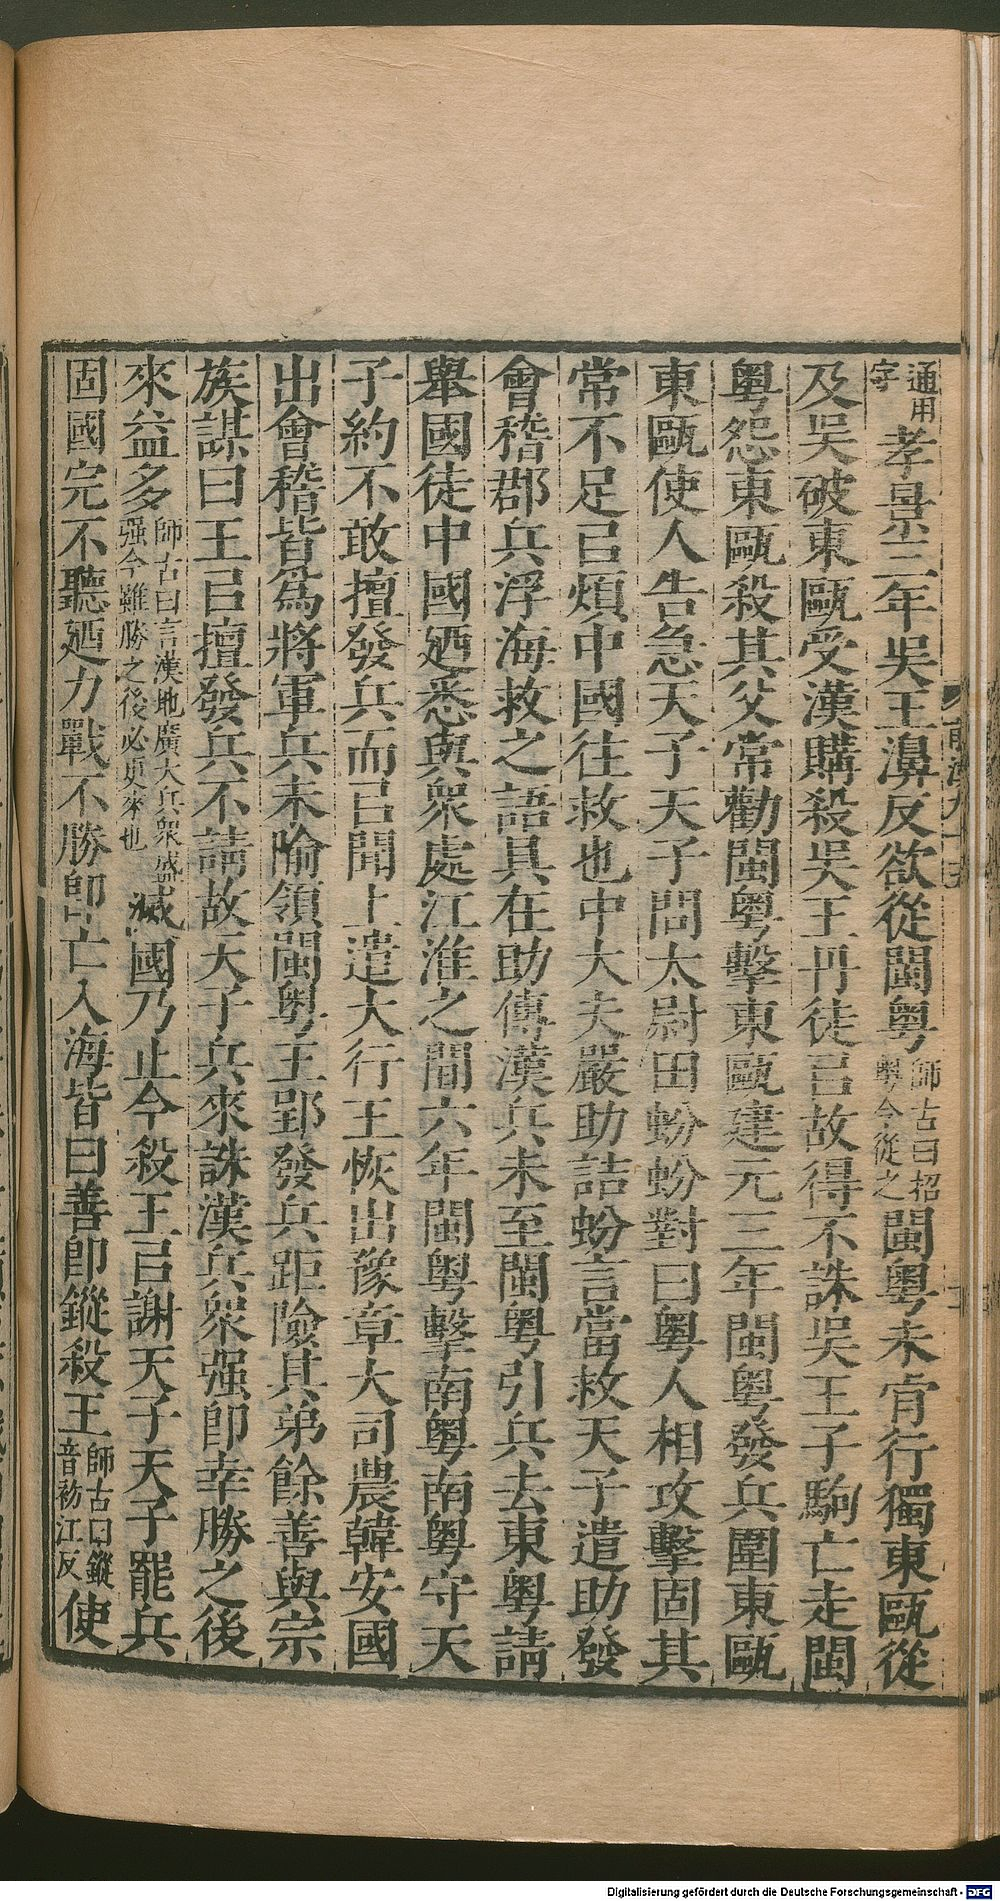 通用字孝景三年吳王濞反欲從閩粵師古曰招粵令從之閩粵未肯行獨東甌從
及吳破東甌受漢購殺吳王丹徒㠯故得不誅吳王子駒亡走閩
粵怨東甌殺其父常勸閩粵擊東甌建元三年閩粵發兵圍東甌
東甌使人告急天子天子問太尉田蚡蚡對曰粵人相攻擊固其
常不足㠯煩中國往救也中大夫嚴助詰蚡言當救天子遣助發
會稽郡兵浮海救之語具在助傳漢兵未至閩粵引兵去東粵請
舉國徙中國廼悉與衆處江淮之間六年閩粵擊南粵南粵守天
子約不敢擅發兵而㠯聞上遣大行王恢出豫章大司農韓安國
出會稽皆爲將軍兵未隃領閩粵王郢發兵距險其弟餘善與宗
族謀曰王㠯擅發兵不請故天子兵來誅漢兵衆强即幸勝之後
來益多師古曰言漢地廣大兵衆盛强今雖勝之後必更來也滅國乃止今殺王㠯謝天子天子罷兵
固國完不聽廼力戰不勝即亡入海皆曰善即鏦殺王師古曰鏦音初江反使
前漢九十五
Digitalisierung gefördert durch die Deutsche Forschungsgemeinschaft - DFG